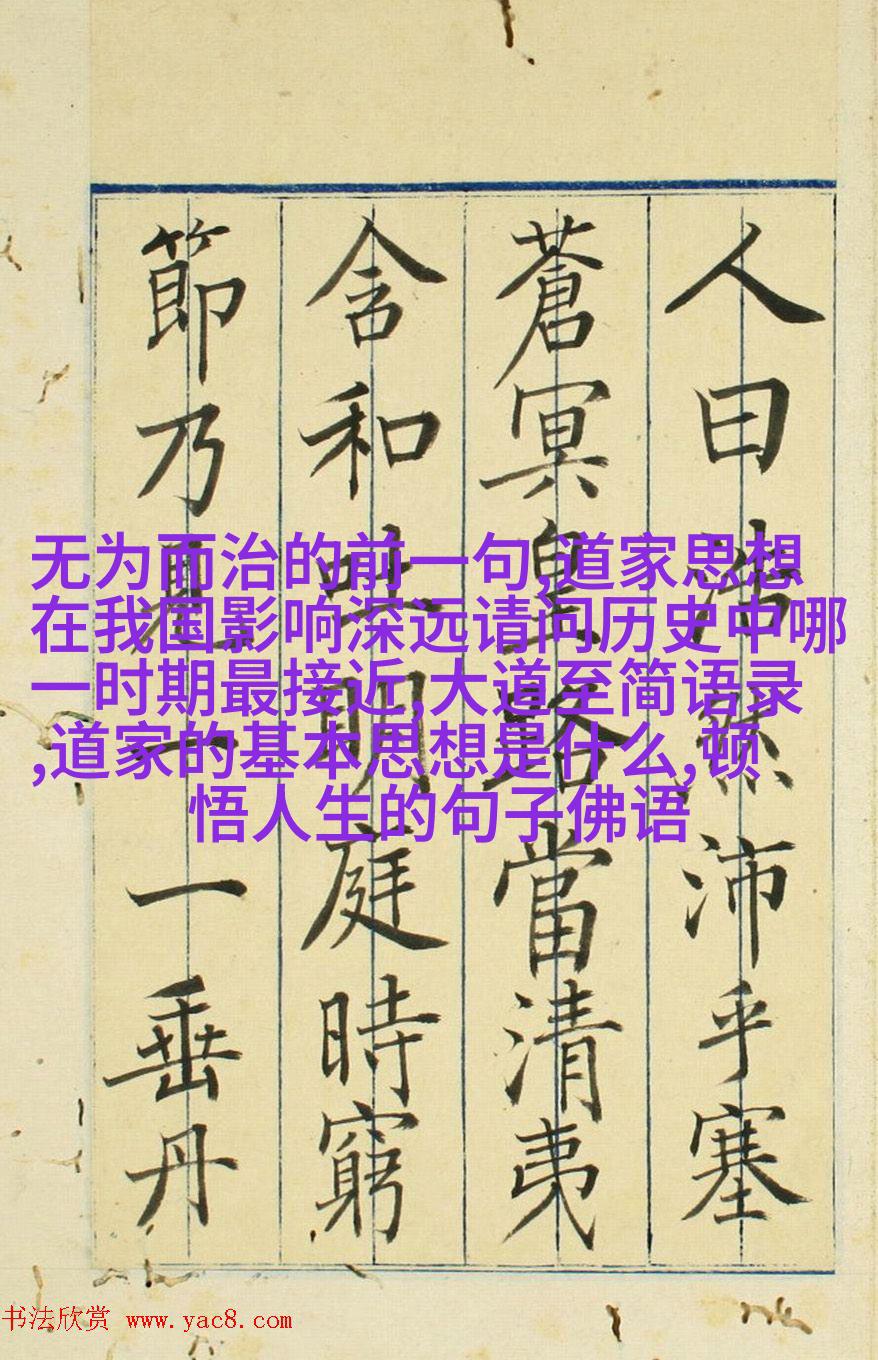 人曰浩然沛乎塞
蒼冥皇路當清夷
含和吐明庭時窮
節乃見一一垂丹
无为而治的前一句,道家思想
在我国影响深远请问历史中哪
一时期最接近,大道至简语录
,道家的基本思想是什么,顿
悟人生的句子佛语
书法欣赏 www.yac8.com